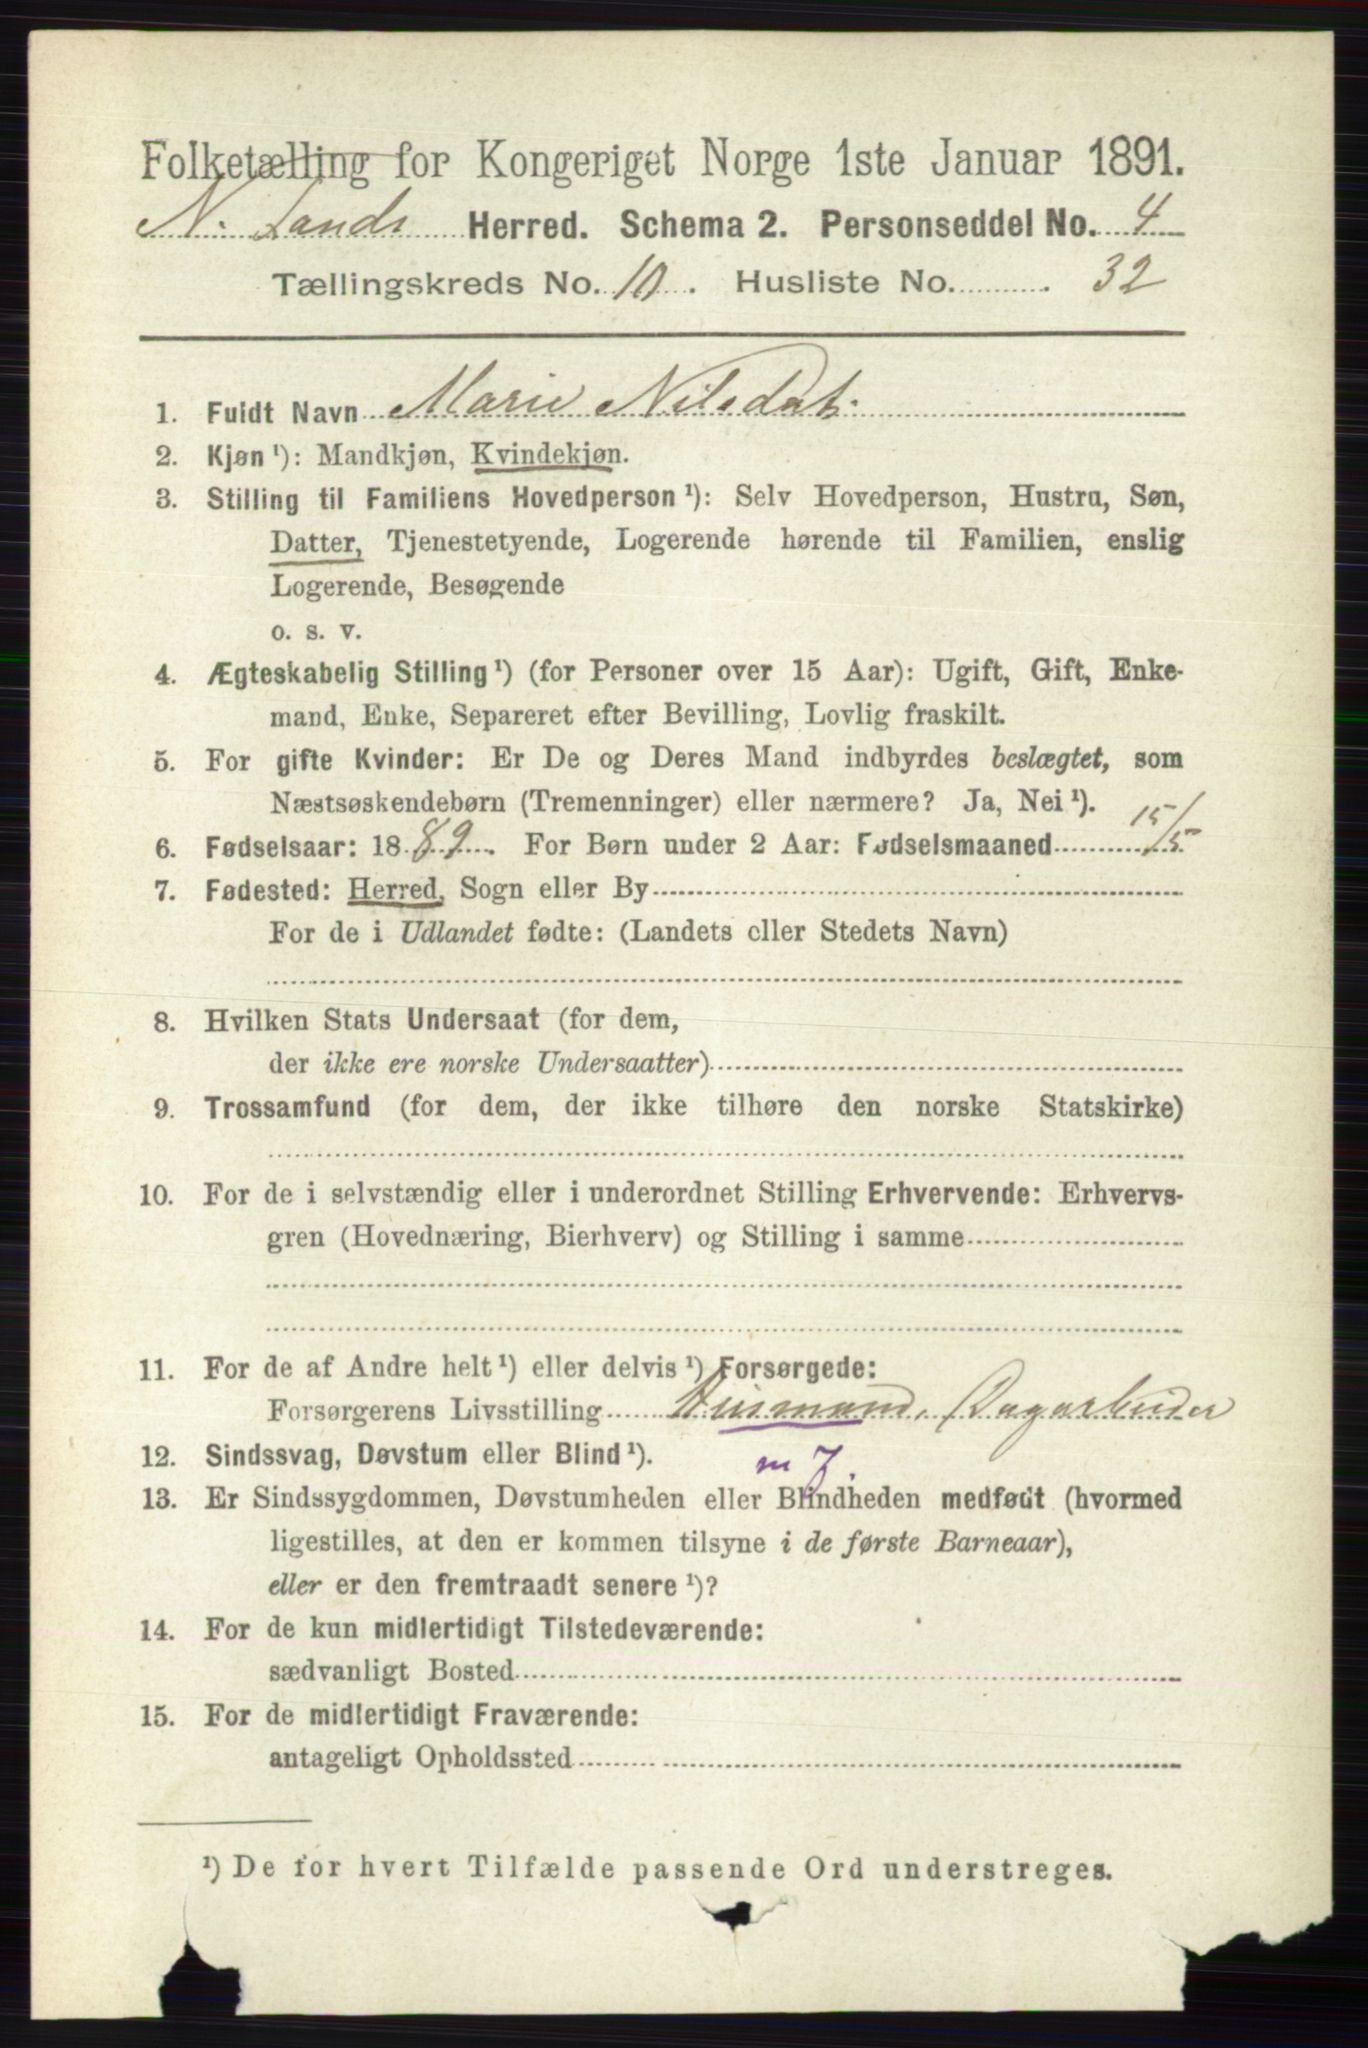 Folketælling for Kongeriget Norge 1ste Januar 1891.
N. Lands Herred. Schema 2. Personseddel No. 4
Tællingskreds No. 10. Husliste No. 32
1. Fuldt Navn Marie Nilsdat.
2. Kjøn ¹): Mandkjøn, Kvindekjøn.
3. Stilling til Familiens Hovedperson ¹): Selv Hovedperson, Hustru, Søn,
Datter, Tjenestetyende, Logerende hørende til Familien, enslig
Logerende, Besøgende
o. s. v.
4. Ægteskabelig Stilling ¹) (for Personer over 15 Aar): Ugift, Gift, Enke-
mand, Enke, Separeret efter Bevilling, Lovlig fraskilt.
5. For gifte Kvinder: Er De og Deres Mand indbyrdes beslægtet, som
Næstsøskendebørn (Tremenninger) eller nærmere? Ja, Nei ¹).
6. Fødselsaar: 1889. For Børn under 2 Aar: Fødselsmaaned 15/5
7. Fødested: Herred, Sogn eller By
For de i Udlandet fødte: (Landets eller Stedets Navn)
8. Hvilken Stats Undersaat (for dem,
der ikke ere norske Undersaatter)
9. Trossamfund (for dem, der ikke tilhøre den norske Statskirke)
10. For de i selvstændig eller i underordnet Stilling Erhvervende: Erhvervs-
gren (Hovednæring, Bierhverv) og Stilling i samme
11. For de af Andre helt ¹) eller delvis ¹) Forsørgede:
Forsørgerens Livsstilling Husmand, Dagarbeider
12. Sindssvag, Døvstum eller Blind ¹).
m J.
13. Er Sindssygdommen, Døvstumheden eller Blindheden medfødt (hvormed
ligestilles, at den er kommen tilsyne i de første Barneaar),
eller er den fremtraadt senere ¹)?
14. For de kun midlertidigt Tilstedeværende:
sædvanligt Bosted
15. For de midlertidigt Fraværende:
antageligt Opholdssted
¹) De for hvert Tilfælde passende Ord understreges.